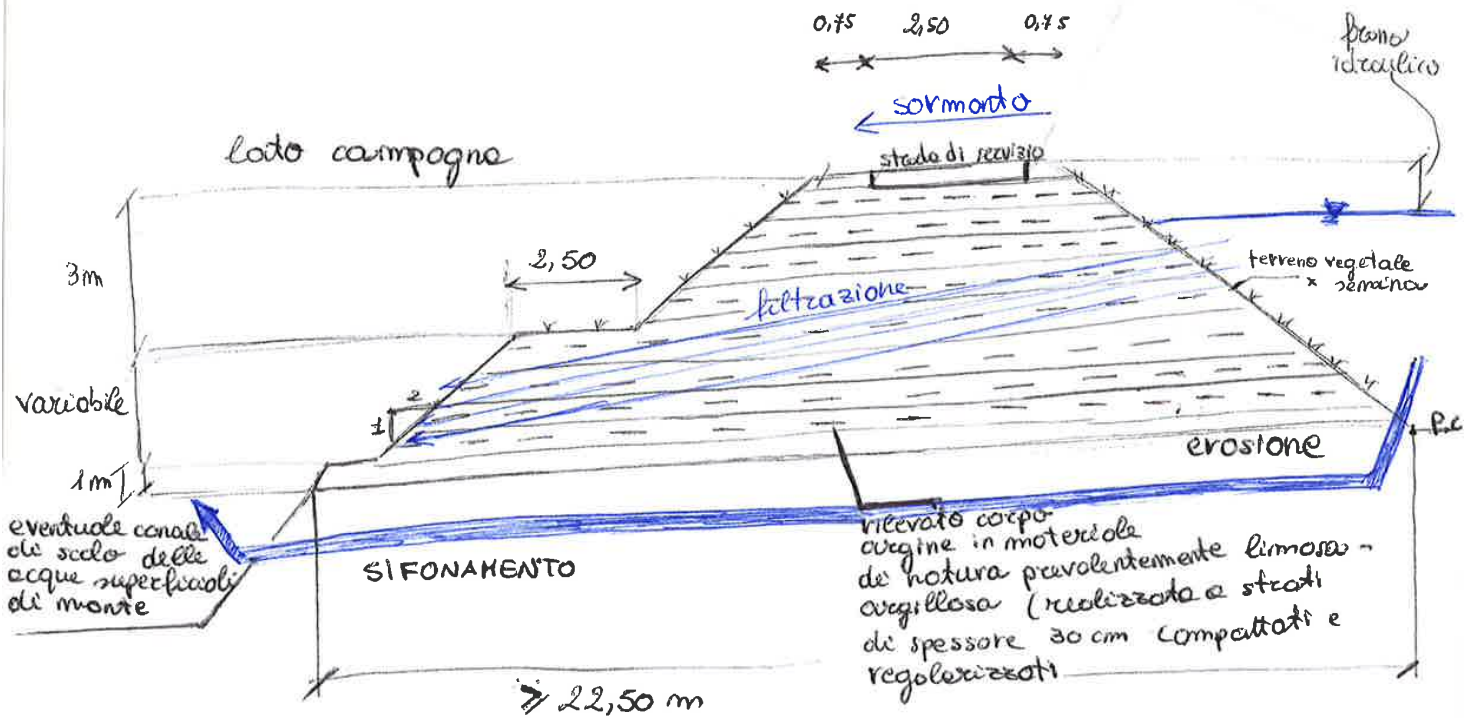 0,75 2,50 0,75
franco
idraulico
sormonto
lato campagna
strada di servizio
3m
2,50
terreno vegetale
x semina
filtrazione
variabile
2
1
P.C
erosione
1m
eventuale canale
di scolo delle
acque superficiali
di monte
SIFONAMENTO
rilevato corpo
argine in materiale
di natura prevalentemente limoso-
argillosa (realizzato a strati
di spessore 30 cm compattati e
regolarizzati
≥ 22,50 m